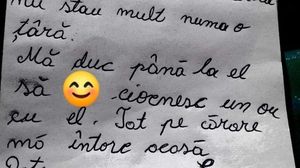 nu stau mult numa o
țâră.
Mă duc până la el
să ciocnesc un ou
cu el. Tot pe cărare
mă întorc acasă